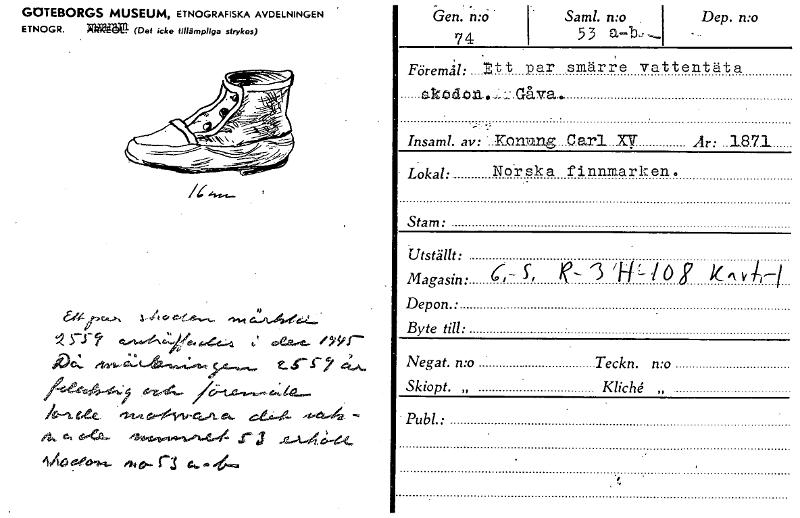 GÖTEBORGS MUSEUM, ETNOGRAFISKA AVDELNINGEN
ETNOGR. ARKEOL. (Det icke tillämpliga strykes)
16 cm
Ett par skodon märkta
2559 anträffades i dec 1945
Då märkningen 2559 är
felaktig och föremålen
torde motsvara det sak-
nade numret 53 erhöll
skodon no 53 a-b
Gen. n:o Saml. n:o Dep. n:o
74 53 a-b.
Föremål: Ett par smärre vattentäta
skodon. Gåva.
Insaml. av: Konung Carl XV År: 1871
Lokal: Norska finnmarken.
Stam:
Utställt:
Magasin: G.-S. R-3 H-108 Kart-1
Depon.:
Byte till:
Negat. n:o Teckn. n:o
Skiopt. „ Kliché „
Publ.: